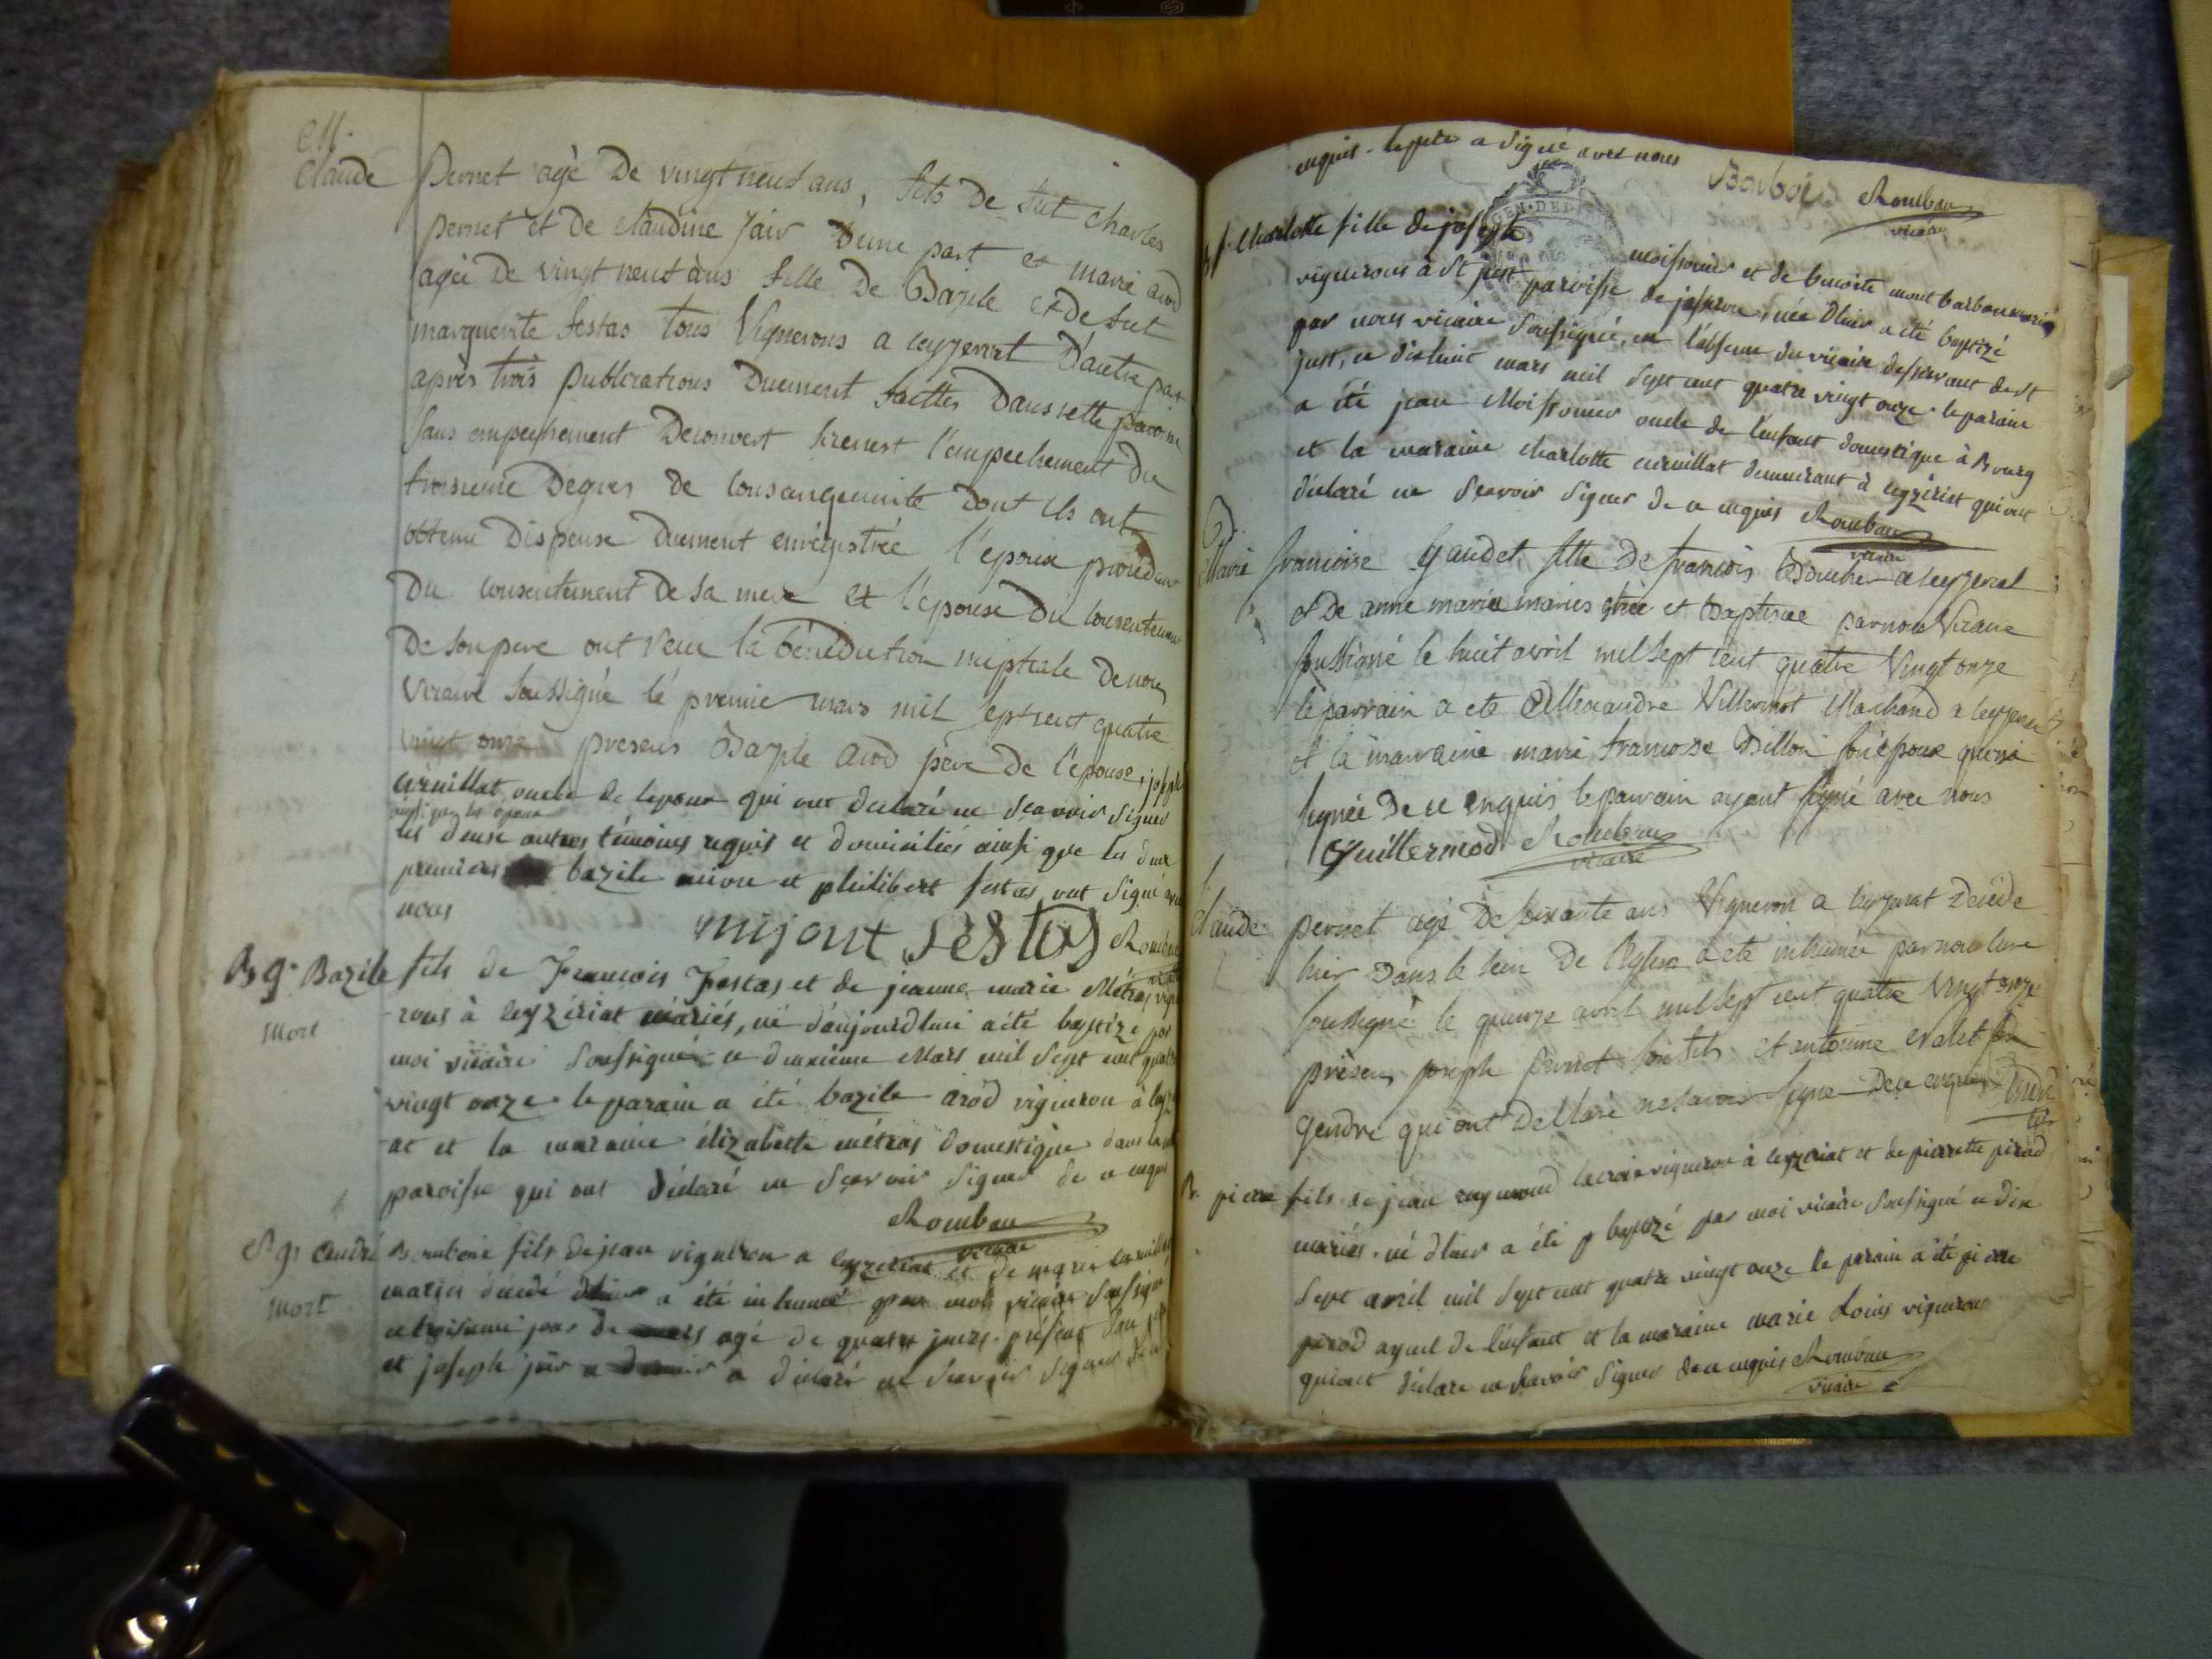 M.
Claude Pernet agé De vingt neuf ans, fils De fut Charles
pernet et De claudine jair D'une part et marie arod
agée De vingt neuf ans fille De Bazile et De fut
marguerite festas tous Vignerons a ceyzeriat D'autre part
après trois publications Duement faittes Dans cette paroisse
sans empechement Decouvert si cenest l'empechement Du
troisieme Degres De consanguinité Dont ils ont
obtenu Dispense Duement enrégistrée l'epoux procedant
Du consentement De sa mere et l'epouse Du consentement
De son pere ont recu la bénédiction nuptiale De nous
Vicaire soussigné le premier mars mil sept cent quatre
vingt onze presens Bazile arod père De l'epouse, joseph
cirnillat oncle de lepoux qui ont declaré ne scavoir signer
ainsi que les époux
les deux autres témoins requis et domiciliés ainsi que les deux
premiers bazile mion et philibert festas ont signé avec
nous
mijont festas Rombau
B g. Bazile fils de François Festas et de jeanne marie Métras vigne
mort
rons à ceyzériat mariés, né d'aujourdhui a été baptizé par
moi vicaire soussigné ce deuxieme Mars mil sept cent quatre
vingt onze le parain a été bazile arod vigneron à ceyzé
at et la maraine élizabeth métras domestique dans la
paroisse qui ont déclaré ne scavoir signer de ce enquis
Rombau
vicaire
S g. andré fils de jean vigneron a ceyzeriat et de marie
mort
mariés décédé a été inhumé par moi vicaire soussigné
ce troisieme jour de mars agé de quatre jours. présent son père
et joseph jair a déclaré ne scavoir signer de ce
enquis. a signé avec nous Rombau
vicaire
B f. Charlotte fille de joseph moissonier et de benoite mont barbon mariés
vignerons à St just paroisse de jasseron, née dhier a été baptizé
par nous vicaire soussigné, en l'absence du vicaire desservant de St
just, ce dixhuit mars mil sept cent quatre vingt onze. le parain
a été jean Moissonier oncle de l'enfant domestique à Bourg
et la maraine charlotte cirnillat demeurant à ceyzériat qui ont
déclaré ne scavoir signer de ce enquis Rombau
vicaire
B.
Marie francoise gaudet fille De francois Boucher a ceyzeriat
et De anne marie mariés née et Baptisée par nous Vicaire
soussigné le huit avril mil sept cent quatre Vingt onze
le parrain a ete Allexandre Villermot Marchand a ceyzeriat
et la marraine marie francoise Dillon son épouse qui n'a
signée De ce enquis le parrain ayant signé avec nous
Guillermod Rombau
vicaire
Claude pernet agé De soixante ans Vigneron a ceyzeriat Décédé
hier Dans le sein De l'Eglise a ete inhumée par nous Cure
soussigné le quinze avril mil sept cent quatre Vingt onze
présens joseph pernet son fils et antoinne Valet son
gendre qui ont Dellaré ne savoir signé De ce enquis
B. pierre fils de jean raymond lacroix vigneron à ceyzériat et de pierrette pirod
mariés. né dhier a été baptizé par moi vicaire soussigné ce dix
sept avril mil sept cent quatre vingt onze le parain a été pierre
pirod ayeul de l'enfant et la maraine marie Louis vignerons
qui ont déclaré ne scavoir signer de ce enquis Rombau
vicaire